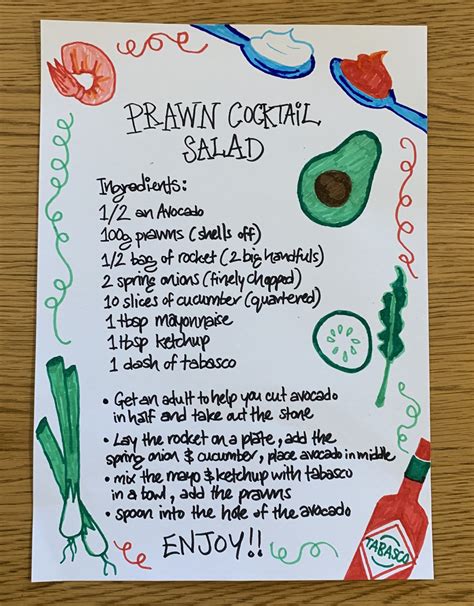 PRAWN COCKTAIL
SALAD
Ingredients:
1/2 an Avocado
100g prawns (shells off)
1/2 bag of rocket (2 big handfuls)
2 spring onions (finely chopped)
10 slices of cucumber (quartered)
1 tbsp mayonnaise
1 tbsp ketchup
1 dash of tabasco
• Get an adult to help you cut avocado
in half and take out the stone
• Lay the rocket on a plate, add the
spring onion & cucumber, place avocado in middle
• mix the mayo & ketchup with tabasco
in a bowl, add the prawns
• spoon into the hole of the avocado
ENJOY!!
TABASCO